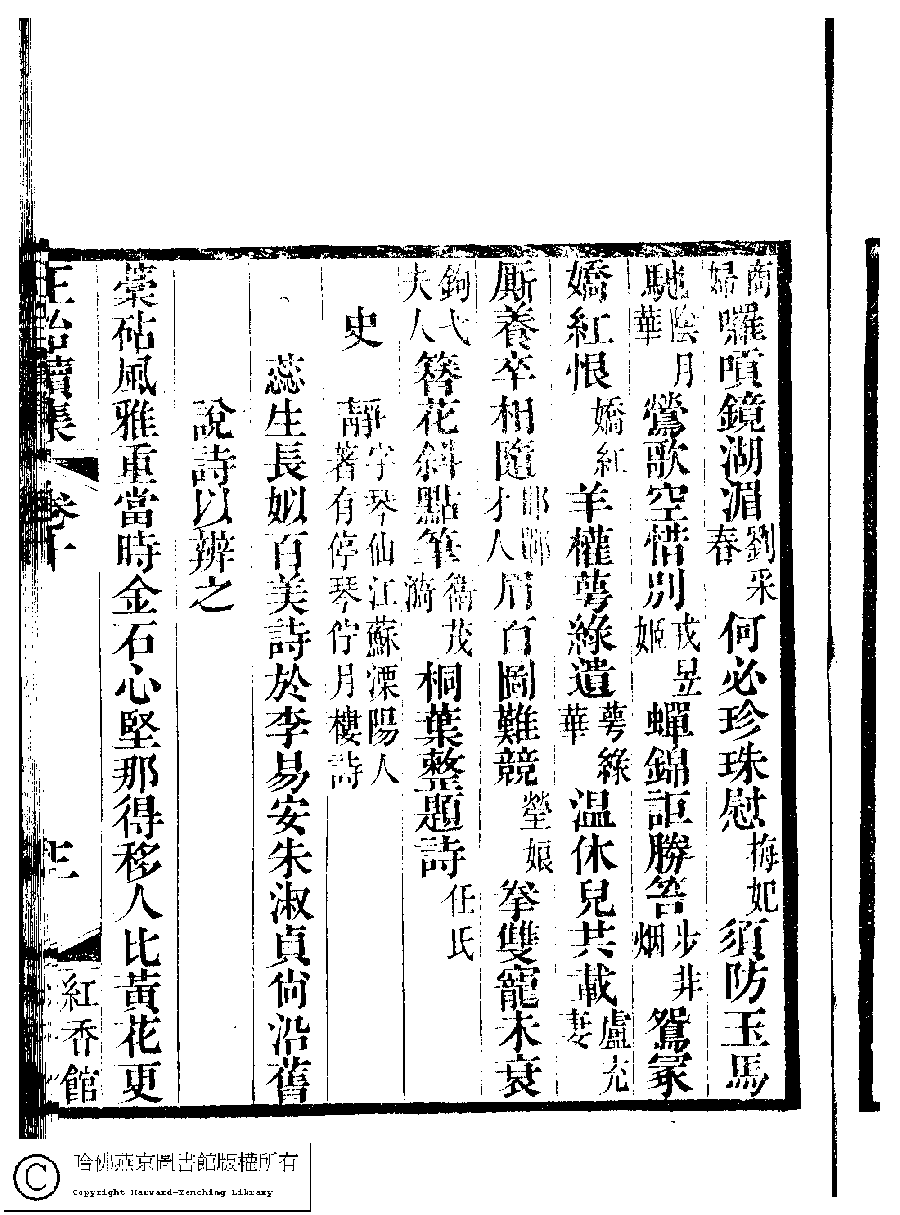 商婦囉嗊鏡湖湄劉采春何必珍珠慰梅妃須防玉馬
馳陰月華鶯歌空惜別戎昱姬蟬錦詎勝答步非烟鴛冢
嬌紅恨嬌紅羊權萼綠遺萼綠華温休兒共載盧充妻
厮養卒相隨邯鄲才人眉百圖難競瑩娘拳雙寵未衰
鉤弋夫人簪花斜點筆衛茂漪桐葉整題詩任氏
史靜字琴仙江蘇溧陽人著有停琴佇月樓詩
蕊生長姒百美詩於李易安朱淑貞尙沿舊
說詩以辨之
藁砧風雅重當時金石心堅那得移人比黃花更
正始續集 卷十 紅香館
哈佛燕京圖書館版權所有
Copyright Harvard-Yenching Library